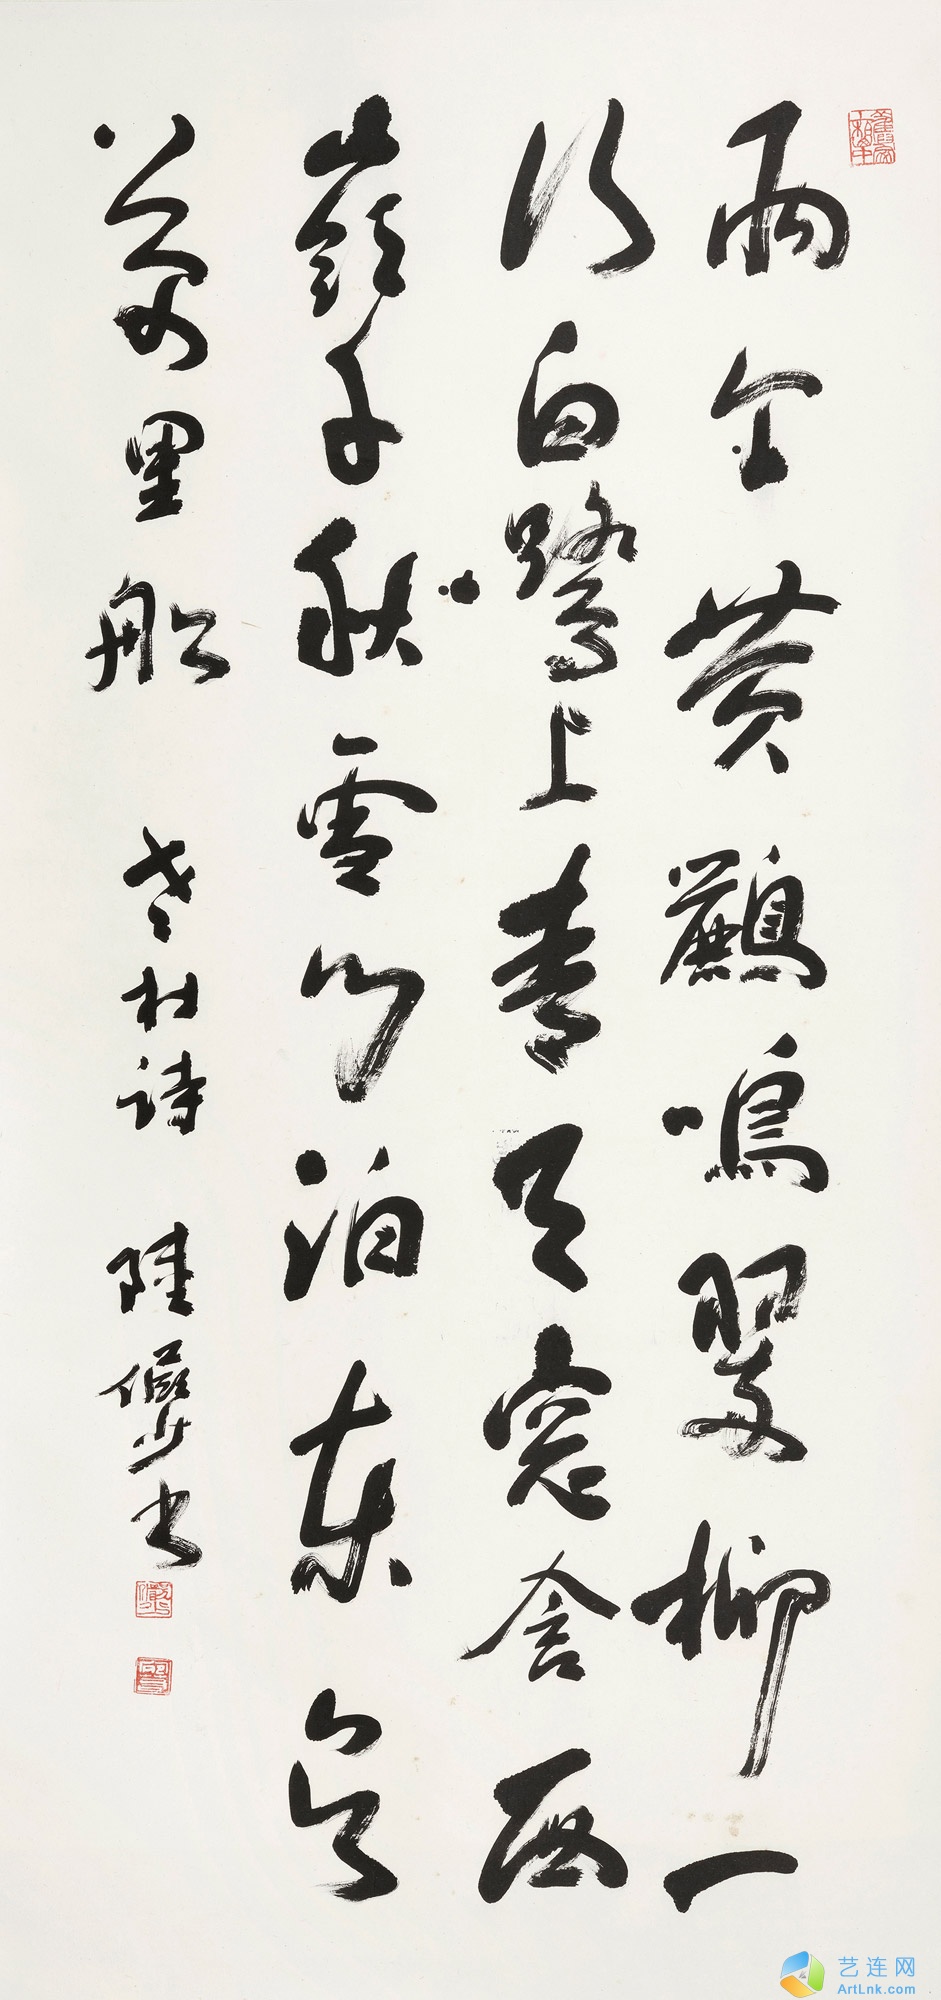 兩个黃鸝鳴翠柳一
行白鷺上青天窓含西
嶺千秋雪門泊東吳
萬里船 老杜詩 陸儼少書
艺连网
ArtLnk.com